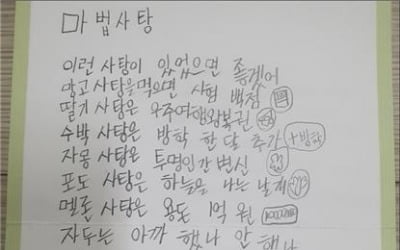 마법사탕
이런 사탕이 있었으면 좋겠어
망고사탕을먹으면 시험 백점
딸기 사탕은 우주여행왕복권
수박 사탕은 방학 한 달 추가 +방학
자몽 사탕은 투명인간 변신
포도 사탕은 하늘을 나는 날개
멜론 사탕은 용돈 1억 원
자두는 아까 했나 안 했나